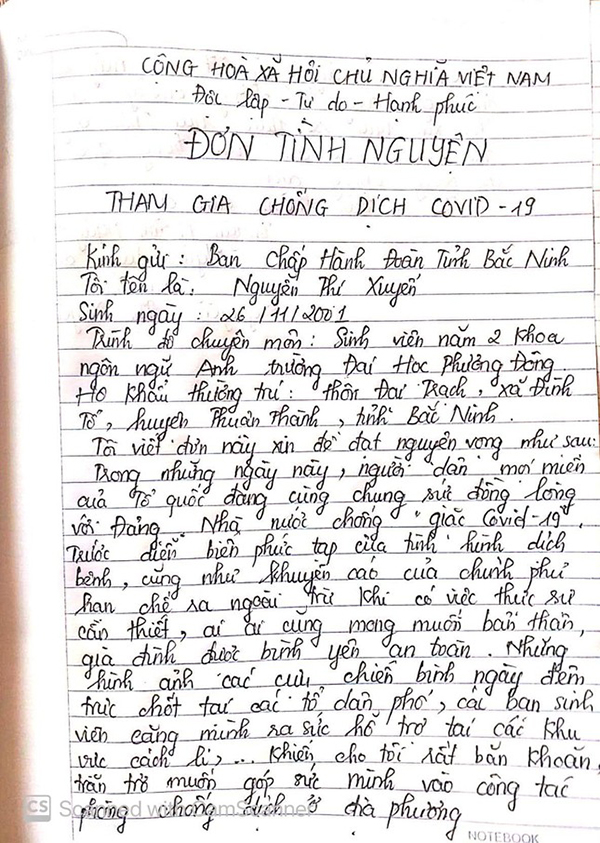 CỘNG HOÀ XÃ HỘI CHỦ NGHĨA VIỆT NAM
Độc lập - Tự do - Hạnh phúc
ĐƠN TÌNH NGUYỆN
THAM GIA CHỐNG DỊCH COVID-19
Kính gửi: Ban Chấp Hành Đoàn Tỉnh Bắc Ninh
Tôi tên là: Nguyễn Thị Xuyến
Sinh ngày: 26/11/2001
Trình độ chuyên môn: Sinh viên năm 2 khoa
ngôn ngữ Anh trường Đại Học Phương Đông.
Hộ khẩu thường trú: thôn Đại Trạch, xã Đình
Tổ, huyện Thuận Thành, tỉnh Bắc Ninh.
Tôi viết đơn này xin đề đạt nguyện vọng như sau:
Trong những ngày này, người dân mọi miền
của Tổ quốc đang cùng chung sức đồng lòng
với Đảng, Nhà nước chống "giặc Covid-19".
Trước diễn biến phức tạp của tình hình dịch
bệnh, cũng như khuyến cáo của chính phủ
hạn chế ra ngoài trừ khi có việc thực sự
cần thiết, ai ai cũng mong muốn bản thân,
gia đình được bình yên an toàn. Những
hình ảnh các cựu chiến binh ngày đêm
trực chốt tại các tổ dân phố, các bạn sinh
viên căng mình ra sức hỗ trợ tại các khu
vực cách li,... khiến cho tôi rất băn khoăn,
trăn trở muốn góp sức mình vào công tác
phòng chống dịch ở địa phương
CS Scanned with CamScanner
NOTEBOOK